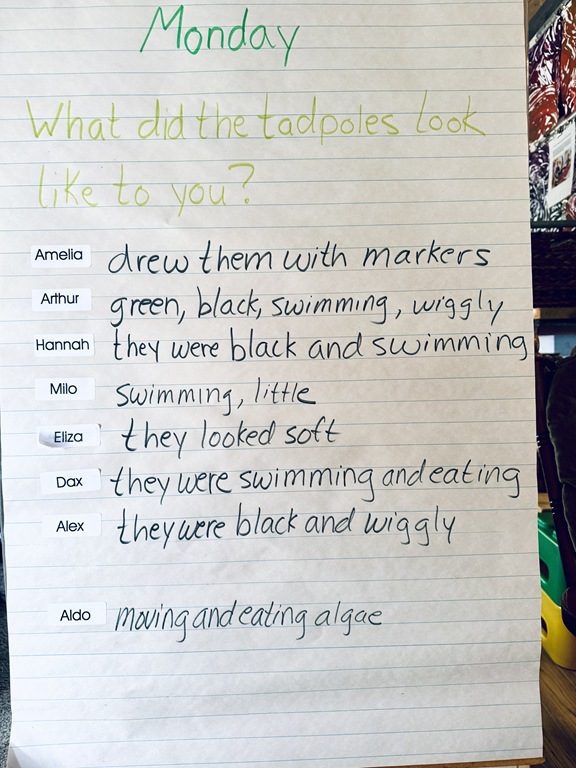 Monday
What did the tadpoles look
like to you?
Amelia drew them with markers
Arthur green, black, swimming, wiggly
Hannah they were black and swimming
Milo swimming, little
Eliza they looked soft
Dax they were swimming and eating
Alex they were black and wiggly
Aldo moving and eating algae